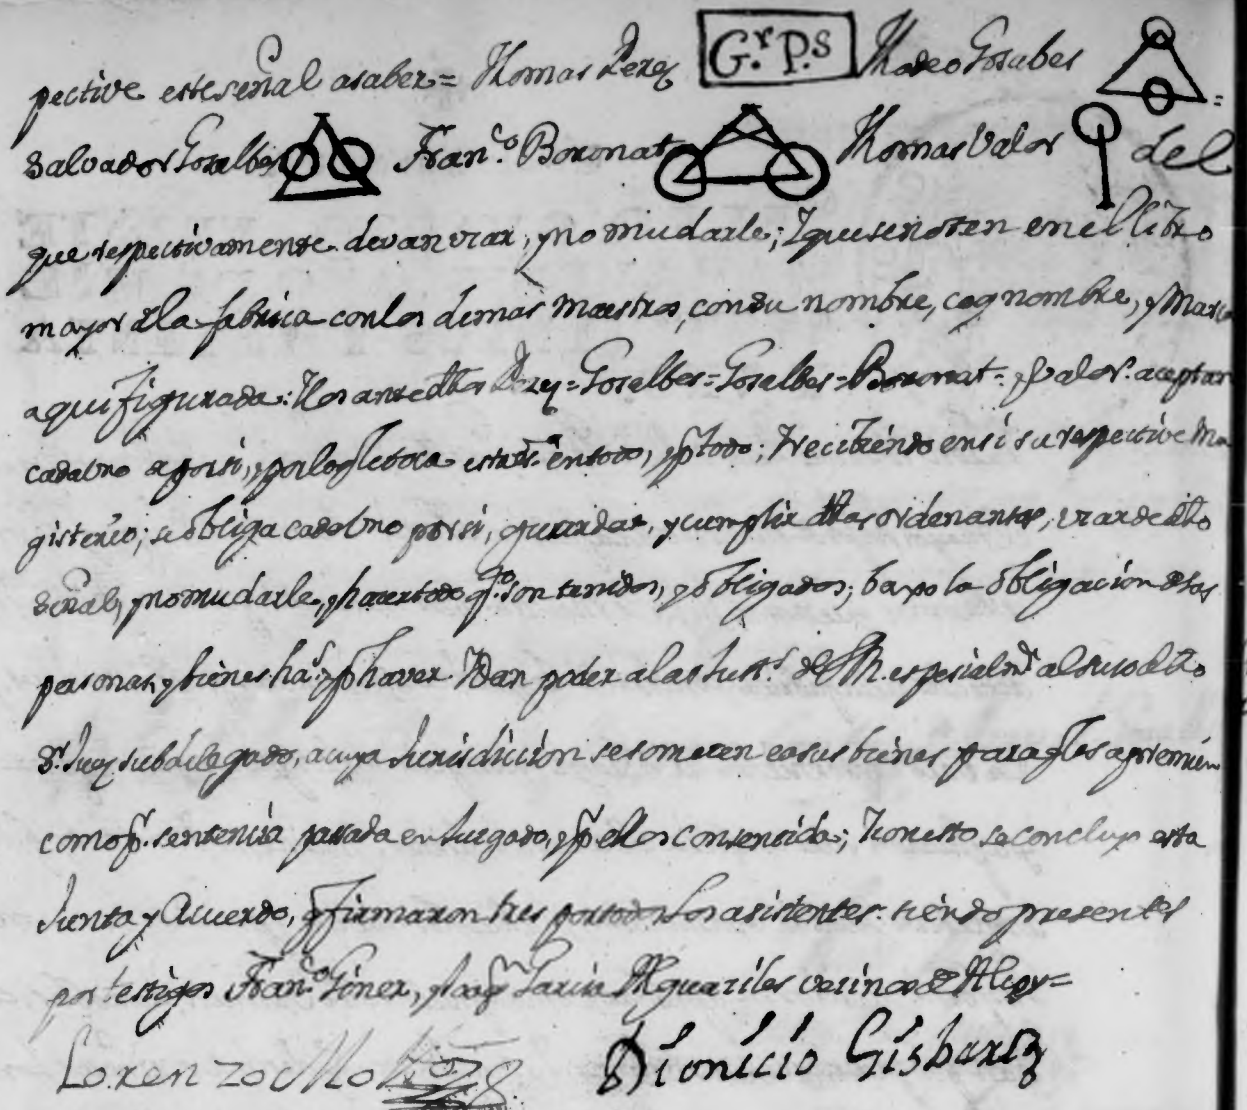 pective este señal asaber= Thomas Perez G.r P.s Thadeo Gosalbes =
Salvador Gosalbes Fran.co Boronat Thomas Valor del
que respectivamente devan usar, y no mudarle; Y que se noten en el Libro
mayor de la fabrica con los demas Maestros, con su nombre, cognombre, y Marca
aqui figurada: Y los antedhos Perez= Gosalbes= Gosalbes= Boronat= y Valor. aceptan
cada uno a por si, y por lo q.e le toca esta en todo, y p.r todo; Y recibiendo en si su respective Ma
gisterio; se obliga cada uno por si, guardar, y cumplir dhas ordenansas, usar de dho
señal, y no mudarle, y hacer todo q.to son tenidos, y obligados; baxo la obligacion de sus
personas, y bienes ha.s y p.r haver Y dan poder a las Just.s de S.M. especialm.te al suso dho
S.r Juez subdelegado, a cuya Jurisdicion se someten e a sus bienes para q.e les apremien
como p.r sentencia passada en Jusgado, y p.r ellos consentida; Y con esto se concluyo esta
Junta y Acuerdo, q.e firmaron tres por todos los asistentes. siendo presentes
por testigos Fran.co Giner, y Alguaciles vesinos de Alcoy=
Lorenzo Dionicio Gisbert